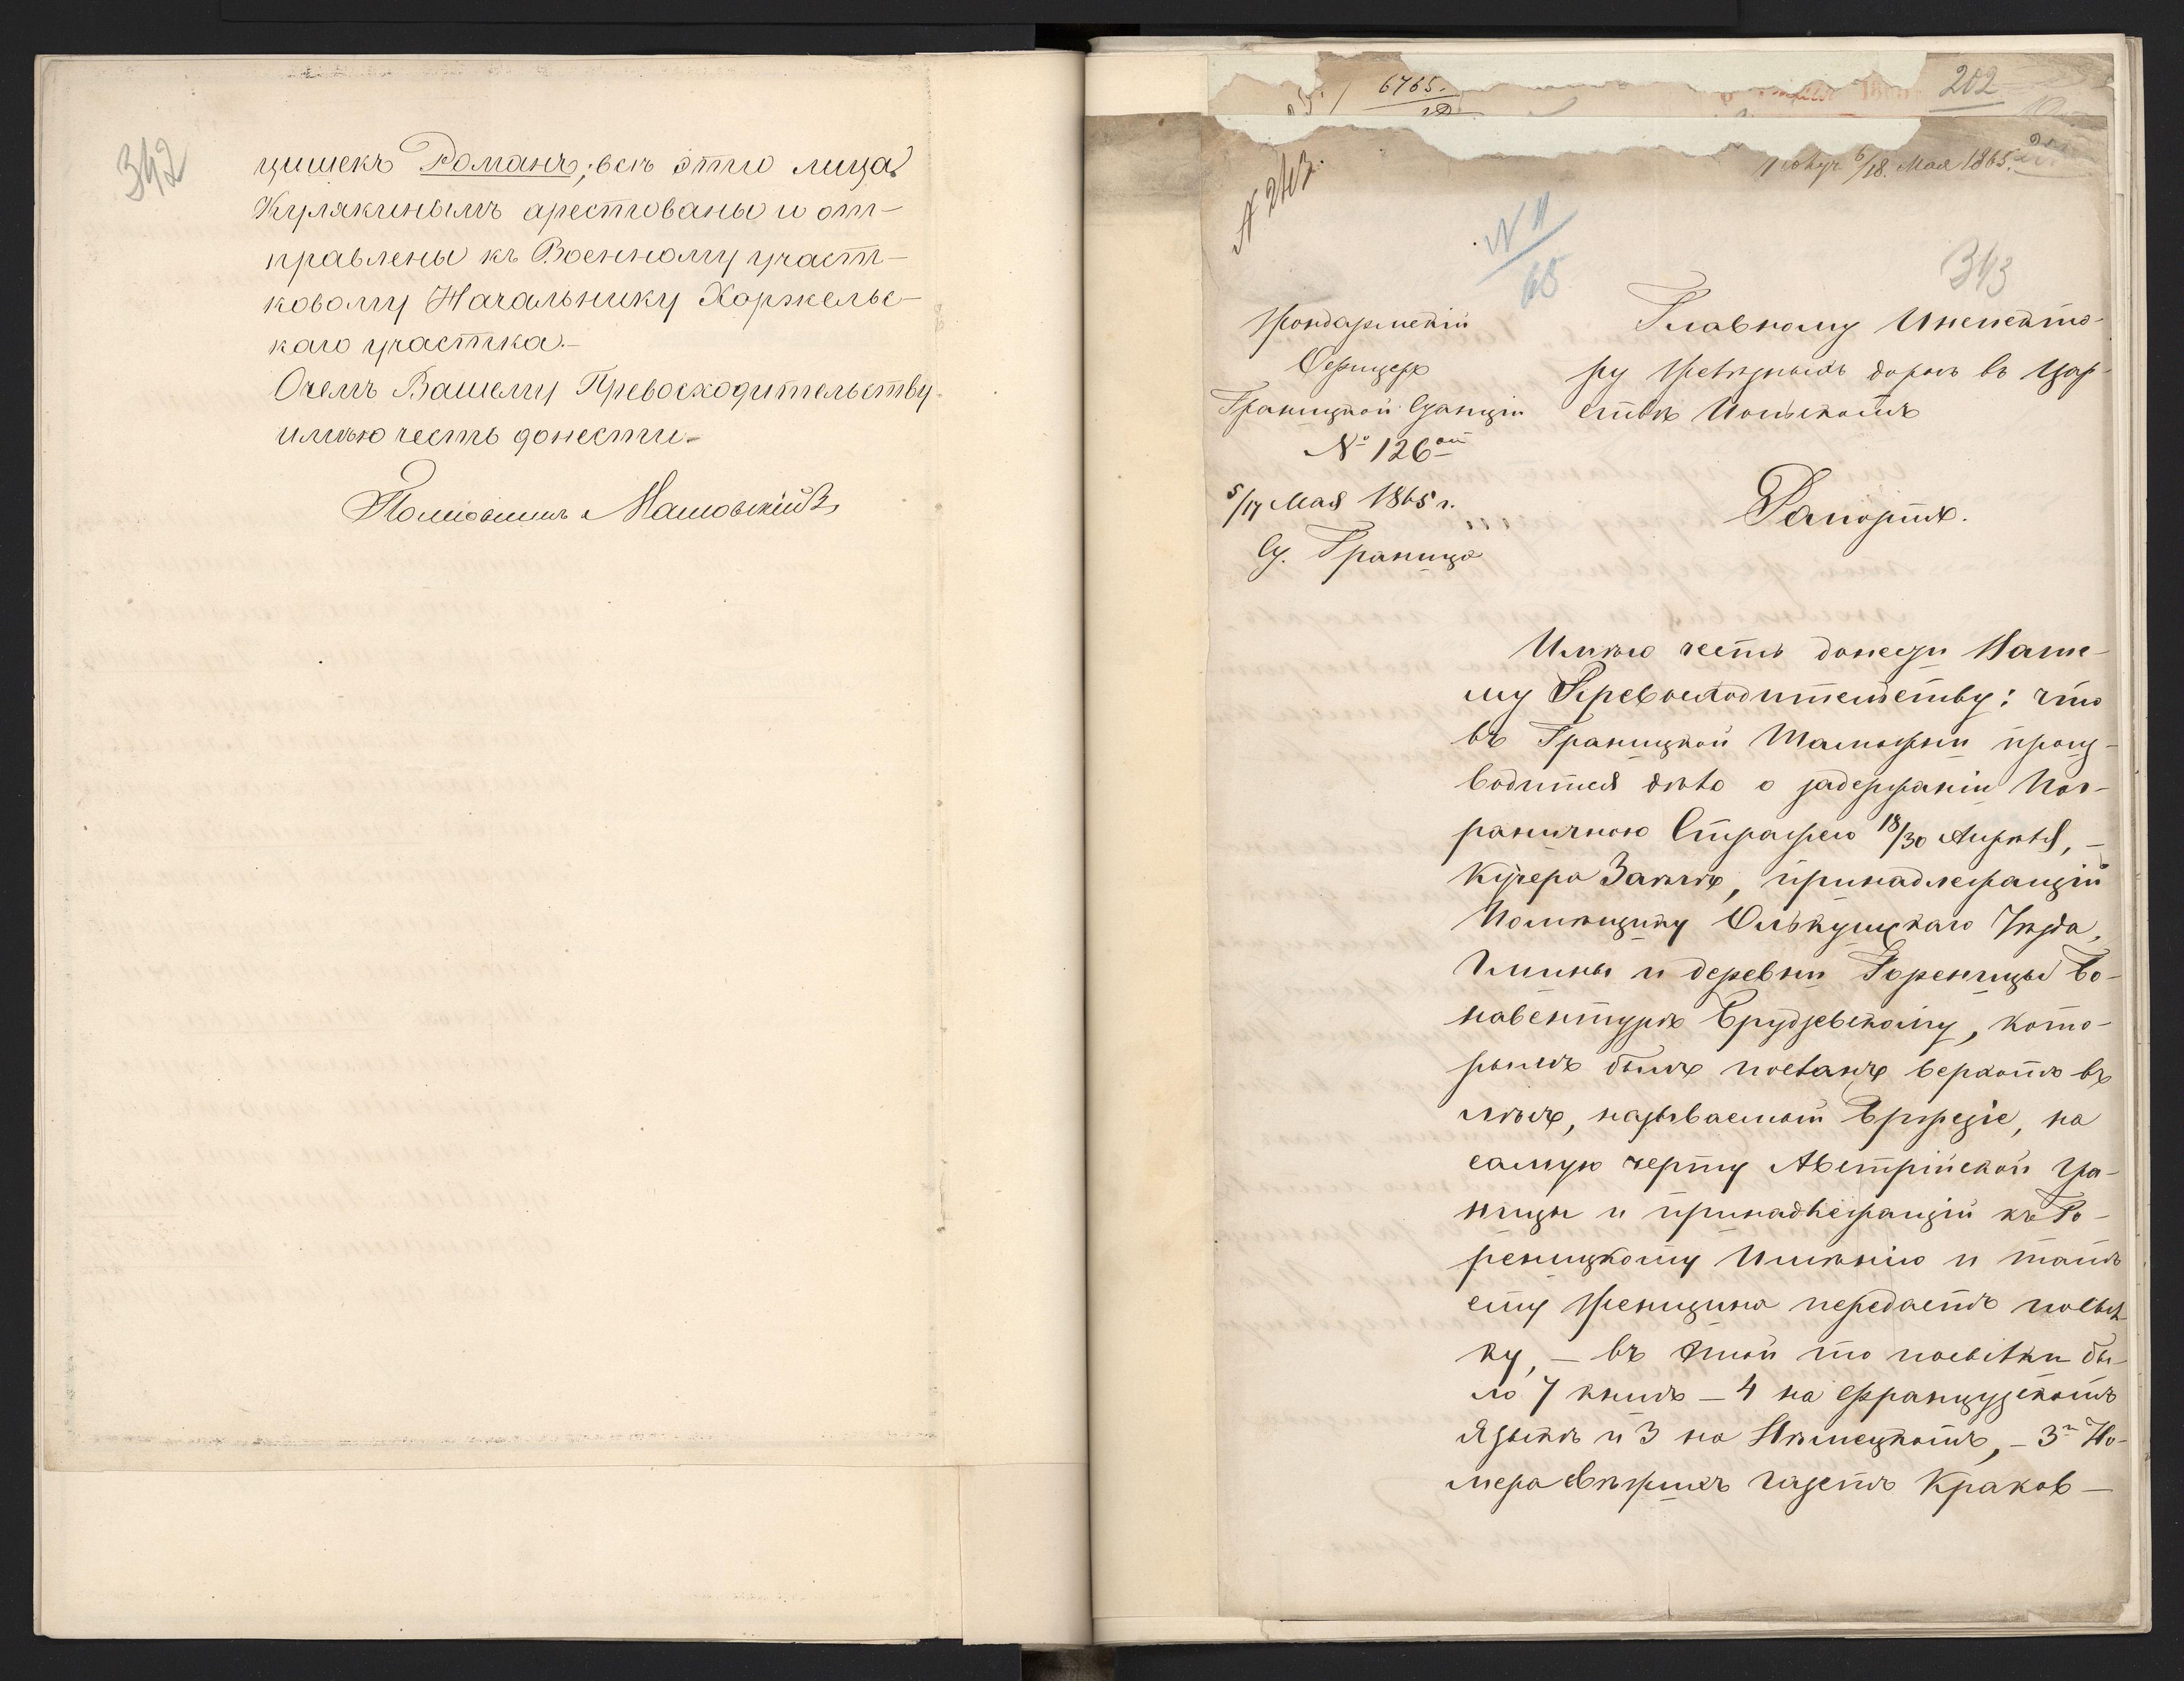 342
цишекъ Романъ; всѣ эти лица
Кулякинымъ арестованы и от-
правлены къ Военному участ-
ковому Начальнику Хоржельс-
каго участка.-
О чемъ Вашему Превосходительству
имѣю честь донести.-
Полковникъ
6765.
202
№ 243.
Получ 6/18. Мая 1865.
№ 11
65
343
Жандармскій
Офицеръ
Границкой Станціи
№ 126ой
5/17 Мая 1865 г.
Ст. Граница
Главному Инспекто-
ру Желѣзныхъ дорогъ въ Цар-
ствѣ Польскомъ
Рапортъ.
Имѣю честь донести Ваше-
му Превосходительству: что
въ Границкой Таможни произ-
водится дѣло о задержаніи Пог-
раничною Стражею 18/30 Апрѣля, -
Кучера принадлежащій
Помѣщику Олькушскаго Уѣзда,
Гмины и деревни Гореницы Бо-
навентурѣ Брудзевскому, кото-
рымъ былъ посланъ верхомъ въ
называемый на
самую черту Австрійской Гра-
ницы и принадлежащій къ Го-
реницкому Имѣнію и тамъ
ему женщина передаетъ посыл-
ку, - въ этой то посылки бы-
ло 7 книгъ - 4 на Французскомъ
Языкѣ и 3 на Нѣмецкомъ, - 3 Но-
мера свѣжихъ газетъ Краков-